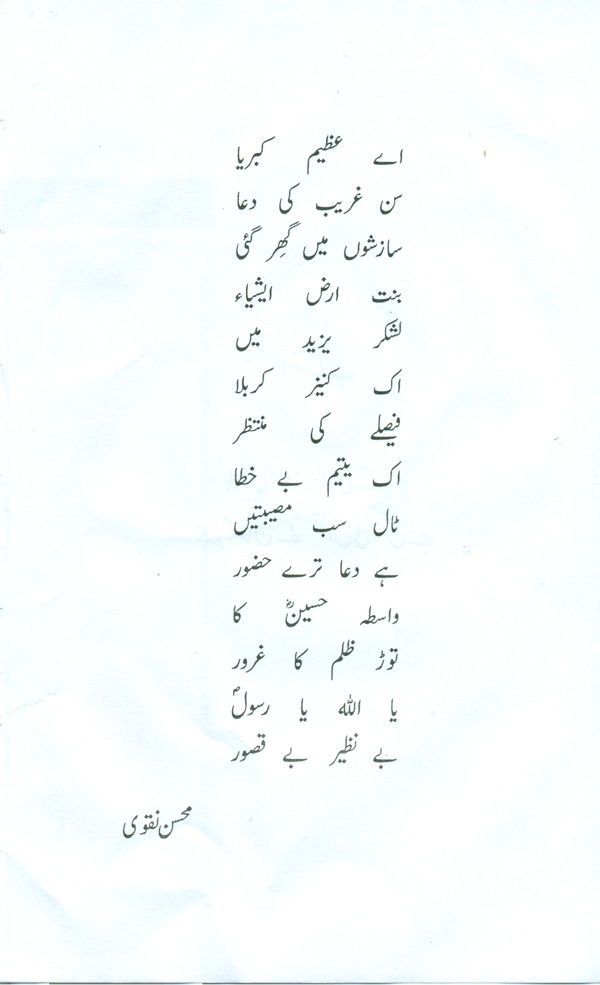 اے عظیم کبریا
سن غریب کی دعا
سازشوں میں گھِر گئی
بنت ارض ایشیاء
لشکر یزید میں
اک کنیز کربلا
فیصلے کی منتظر
اک یتیم بے خطا
ٹال سب مصیبتیں
ہے دعا ترے حضور
واسطہ حسینؓ کا
توڑ ظلم کا غرور
یا اللہ یا رسولؐ
بے نظیر بے قصور
محسن نقوی